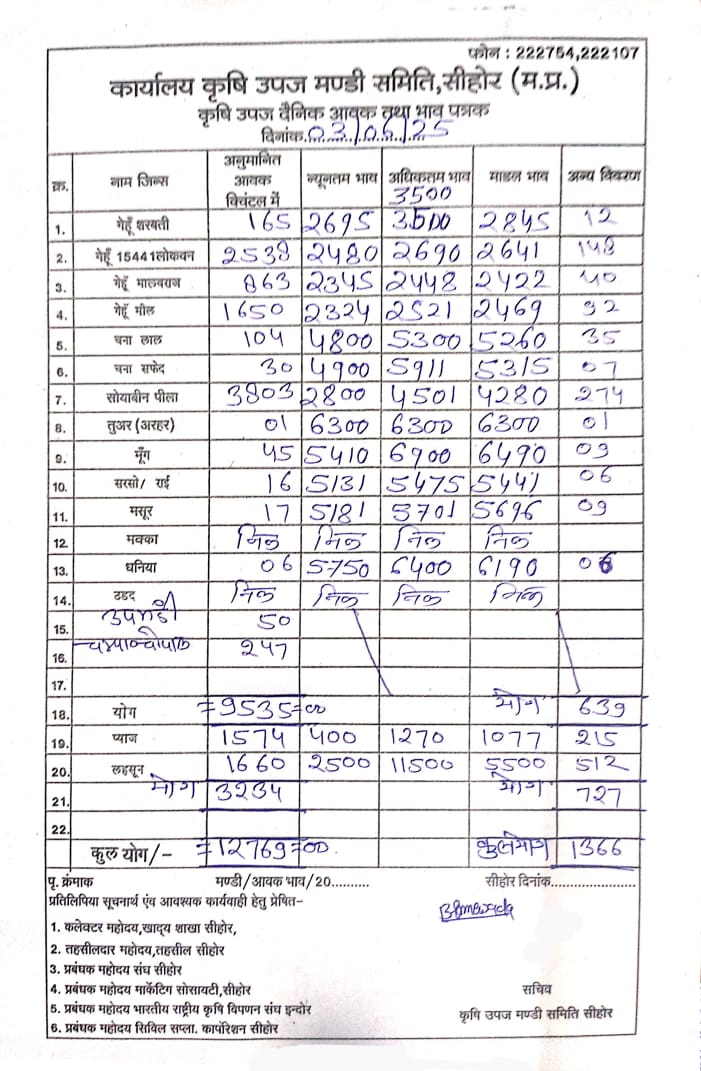 फोन : 222754,222107
कार्यालय कृषि उपज मण्डी समिति,सीहोर (म.प्र.)
कृषि उपज दैनिक आवक तथा भाव पत्रक
दिनांक.03/06/25
क्र. नाम जिन्स अनुमानित आवक क्विंटल में न्यूनतम भाव अधिकतम भाव माडल भाव अन्य विवरण
3500
1. गेहूँ शरबती 165 2695 3500 2845 12
2. गेहूँ 15441लोकवन 2538 2480 2690 2641 148
3. गेहूँ मालवराज 863 2345 2448 2422 40
4. गेहूँ मील 1650 2324 2521 2469 92
5. चना लाल 104 4800 5300 5260 35
6. चना सफेद 30 4900 5911 5315 07
7. सोयाबीन पीला 3803 2800 4501 4280 274
8. तुअर (अरहर) 01 6300 6300 6300 01
9. मूँग 45 5410 6900 6490 09
10. सरसो/ राई 16 5131 5475 5441 06
11. मसूर 17 5181 5701 5696 09
12. मक्का निल निल निल निल
13. धनिया 06 5750 6400 6190 06
14. उडद निल निल निल निल
15. उपमंडी 50
16. 247
17.
18. योग =9535=00 योग 639
19. प्याज 1574 400 1270 1077 215
20. लहसून 1660 2500 11500 5500 512
21. योग 3234 योग 727
22.
कुल योग/- =12769=00 कुलयोग 1366
पृ. क्रंमाक मण्डी/आवक भाव/20.......... सीहोर दिनांक......................
प्रतिलिपिया सूचनार्थ एंव आवश्यक कार्यवाही हेतु प्रेषित–
1. कलेक्टर महोदय,खाद्य शाखा सीहोर,
2. तहसीलदार महोदय,तहसील सीहोर
3. प्रबंधक महोदय संघ सीहोर
4. प्रबंधक महोदय मार्केटिग सोसायटी,सीहोर
5. प्रबंधक महोदय भारतीय राष्ट्रीय कृषि विपणन संघ इन्दोर
6. प्रबंधक महोदय सिविल सप्ला. कार्पोरेशन सीहोर
सचिव
कृषि उपज मण्डी समिति सीहोर